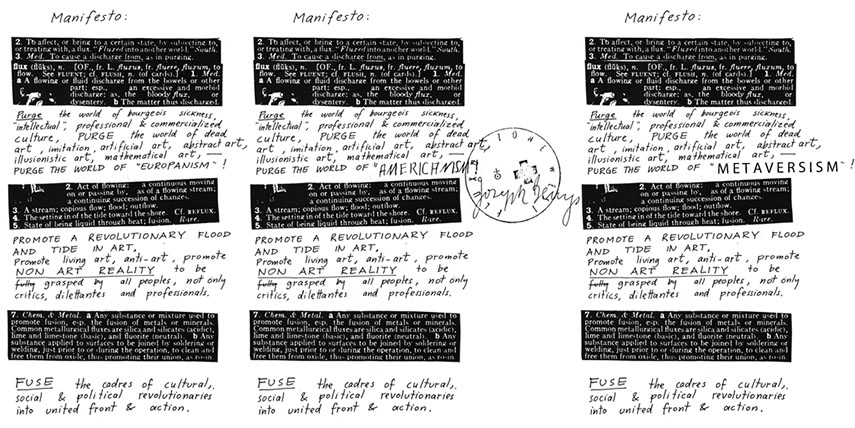 Manifesto:
2. To affect, or bring to a certain state, by subjecting to,
or treating with, a flux. "Fluxed into another world." South.
3. Med. To cause a discharge from, as in purging.
flux (flŭks), n. [OF., fr. L. fluxus, fr. fluere, fluxum, to
flow. See FLUENT; cf. FLUSH, n. (of cards).] 1. Med.
a A flowing or fluid discharge from the bowels or other
part; esp., an excessive and morbid
discharge; as, the bloody flux, or
dysentery. b The matter thus discharged.
Purge the world of bourgeois sickness,
"intellectual", professional & commercialized
culture, PURGE the world of dead
art, imitation, artificial art, abstract art,
illusionistic art, mathematical art, —
PURGE THE WORLD OF "EUROPANISM"!
2. Act of flowing: a continuous moving
on or passing by, as of a flowing stream;
a continuing succession of changes.
3. A stream; copious flow; flood; outflow.
4. The setting in of the tide toward the shore. Cf. REFLUX.
5. State of being liquid through heat; fusion. Rare.
PROMOTE A REVOLUTIONARY FLOOD
AND TIDE IN ART,
Promote living art, anti-art, promote
NON ART REALITY to be
fully grasped by all peoples, not only
critics, dilettantes and professionals.
7. Chem. & Metal. a Any substance or mixture used to
promote fusion, esp. the fusion of metals or minerals.
Common metallurgical fluxes are silica and silicates (acidic),
lime and limestone (basic), and fluorite (neutral). b Any
substance applied to surfaces to be joined by soldering or
welding, just prior to or during the operation, to clean and
free them from oxide, thus promoting their union, as rosin.
FUSE the cadres of cultural,
social & political revolutionaries
into united front & action.
Manifesto:
2. To affect, or bring to a certain state, by subjecting to,
or treating with, a flux. "Fluxed into another world." South.
3. Med. To cause a discharge from, as in purging.
flux (flŭks), n. [OF., fr. L. fluxus, fr. fluere, fluxum, to
flow. See FLUENT; cf. FLUSH, n. (of cards).] 1. Med.
a A flowing or fluid discharge from the bowels or other
part; esp., an excessive and morbid
discharge; as, the bloody flux, or
dysentery. b The matter thus discharged.
Purge the world of bourgeois sickness,
"intellectual", professional & commercialized
culture, PURGE the world of dead
art, imitation, artificial art, abstract art,
illusionistic art, mathematical art, —
PURGE THE WORLD OF "AMERICANISM"
Joseph Beuys
2. Act of flowing: a continuous moving
on or passing by, as of a flowing stream;
a continuing succession of changes.
3. A stream; copious flow; flood; outflow.
4. The setting in of the tide toward the shore. Cf. REFLUX.
5. State of being liquid through heat; fusion. Rare.
PROMOTE A REVOLUTIONARY FLOOD
AND TIDE IN ART,
Promote living art, anti-art, promote
NON ART REALITY to be
fully grasped by all peoples, not only
critics, dilettantes and professionals.
7. Chem. & Metal. a Any substance or mixture used to
promote fusion, esp. the fusion of metals or minerals.
Common metallurgical fluxes are silica and silicates (acidic),
lime and limestone (basic), and fluorite (neutral). b Any
substance applied to surfaces to be joined by soldering or
welding, just prior to or during the operation, to clean and
free them from oxide, thus promoting their union, as rosin.
FUSE the cadres of cultural,
social & political revolutionaries
into united front & action.
Manifesto:
2. To affect, or bring to a certain state, by subjecting to,
or treating with, a flux. "Fluxed into another world." South.
3. Med. To cause a discharge from, as in purging.
flux (flŭks), n. [OF., fr. L. fluxus, fr. fluere, fluxum, to
flow. See FLUENT; cf. FLUSH, n. (of cards).] 1. Med.
a A flowing or fluid discharge from the bowels or other
part; esp., an excessive and morbid
discharge; as, the bloody flux, or
dysentery. b The matter thus discharged.
Purge the world of bourgeois sickness,
"intellectual", professional & commercialized
culture, PURGE the world of dead
art, imitation, artificial art, abstract art,
illusionistic art, mathematical art, —
PURGE THE WORLD OF "METAVERSISM"!
2. Act of flowing: a continuous moving
on or passing by, as of a flowing stream;
a continuing succession of changes.
3. A stream; copious flow; flood; outflow.
4. The setting in of the tide toward the shore. Cf. REFLUX.
5. State of being liquid through heat; fusion. Rare.
PROMOTE A REVOLUTIONARY FLOOD
AND TIDE IN ART,
Promote living art, anti-art, promote
NON ART REALITY to be
fully grasped by all peoples, not only
critics, dilettantes and professionals.
7. Chem. & Metal. a Any substance or mixture used to
promote fusion, esp. the fusion of metals or minerals.
Common metallurgical fluxes are silica and silicates (acidic),
lime and limestone (basic), and fluorite (neutral). b Any
substance applied to surfaces to be joined by soldering or
welding, just prior to or during the operation, to clean and
free them from oxide, thus promoting their union, as rosin.
FUSE the cadres of cultural,
social & political revolutionaries
into united front & action.